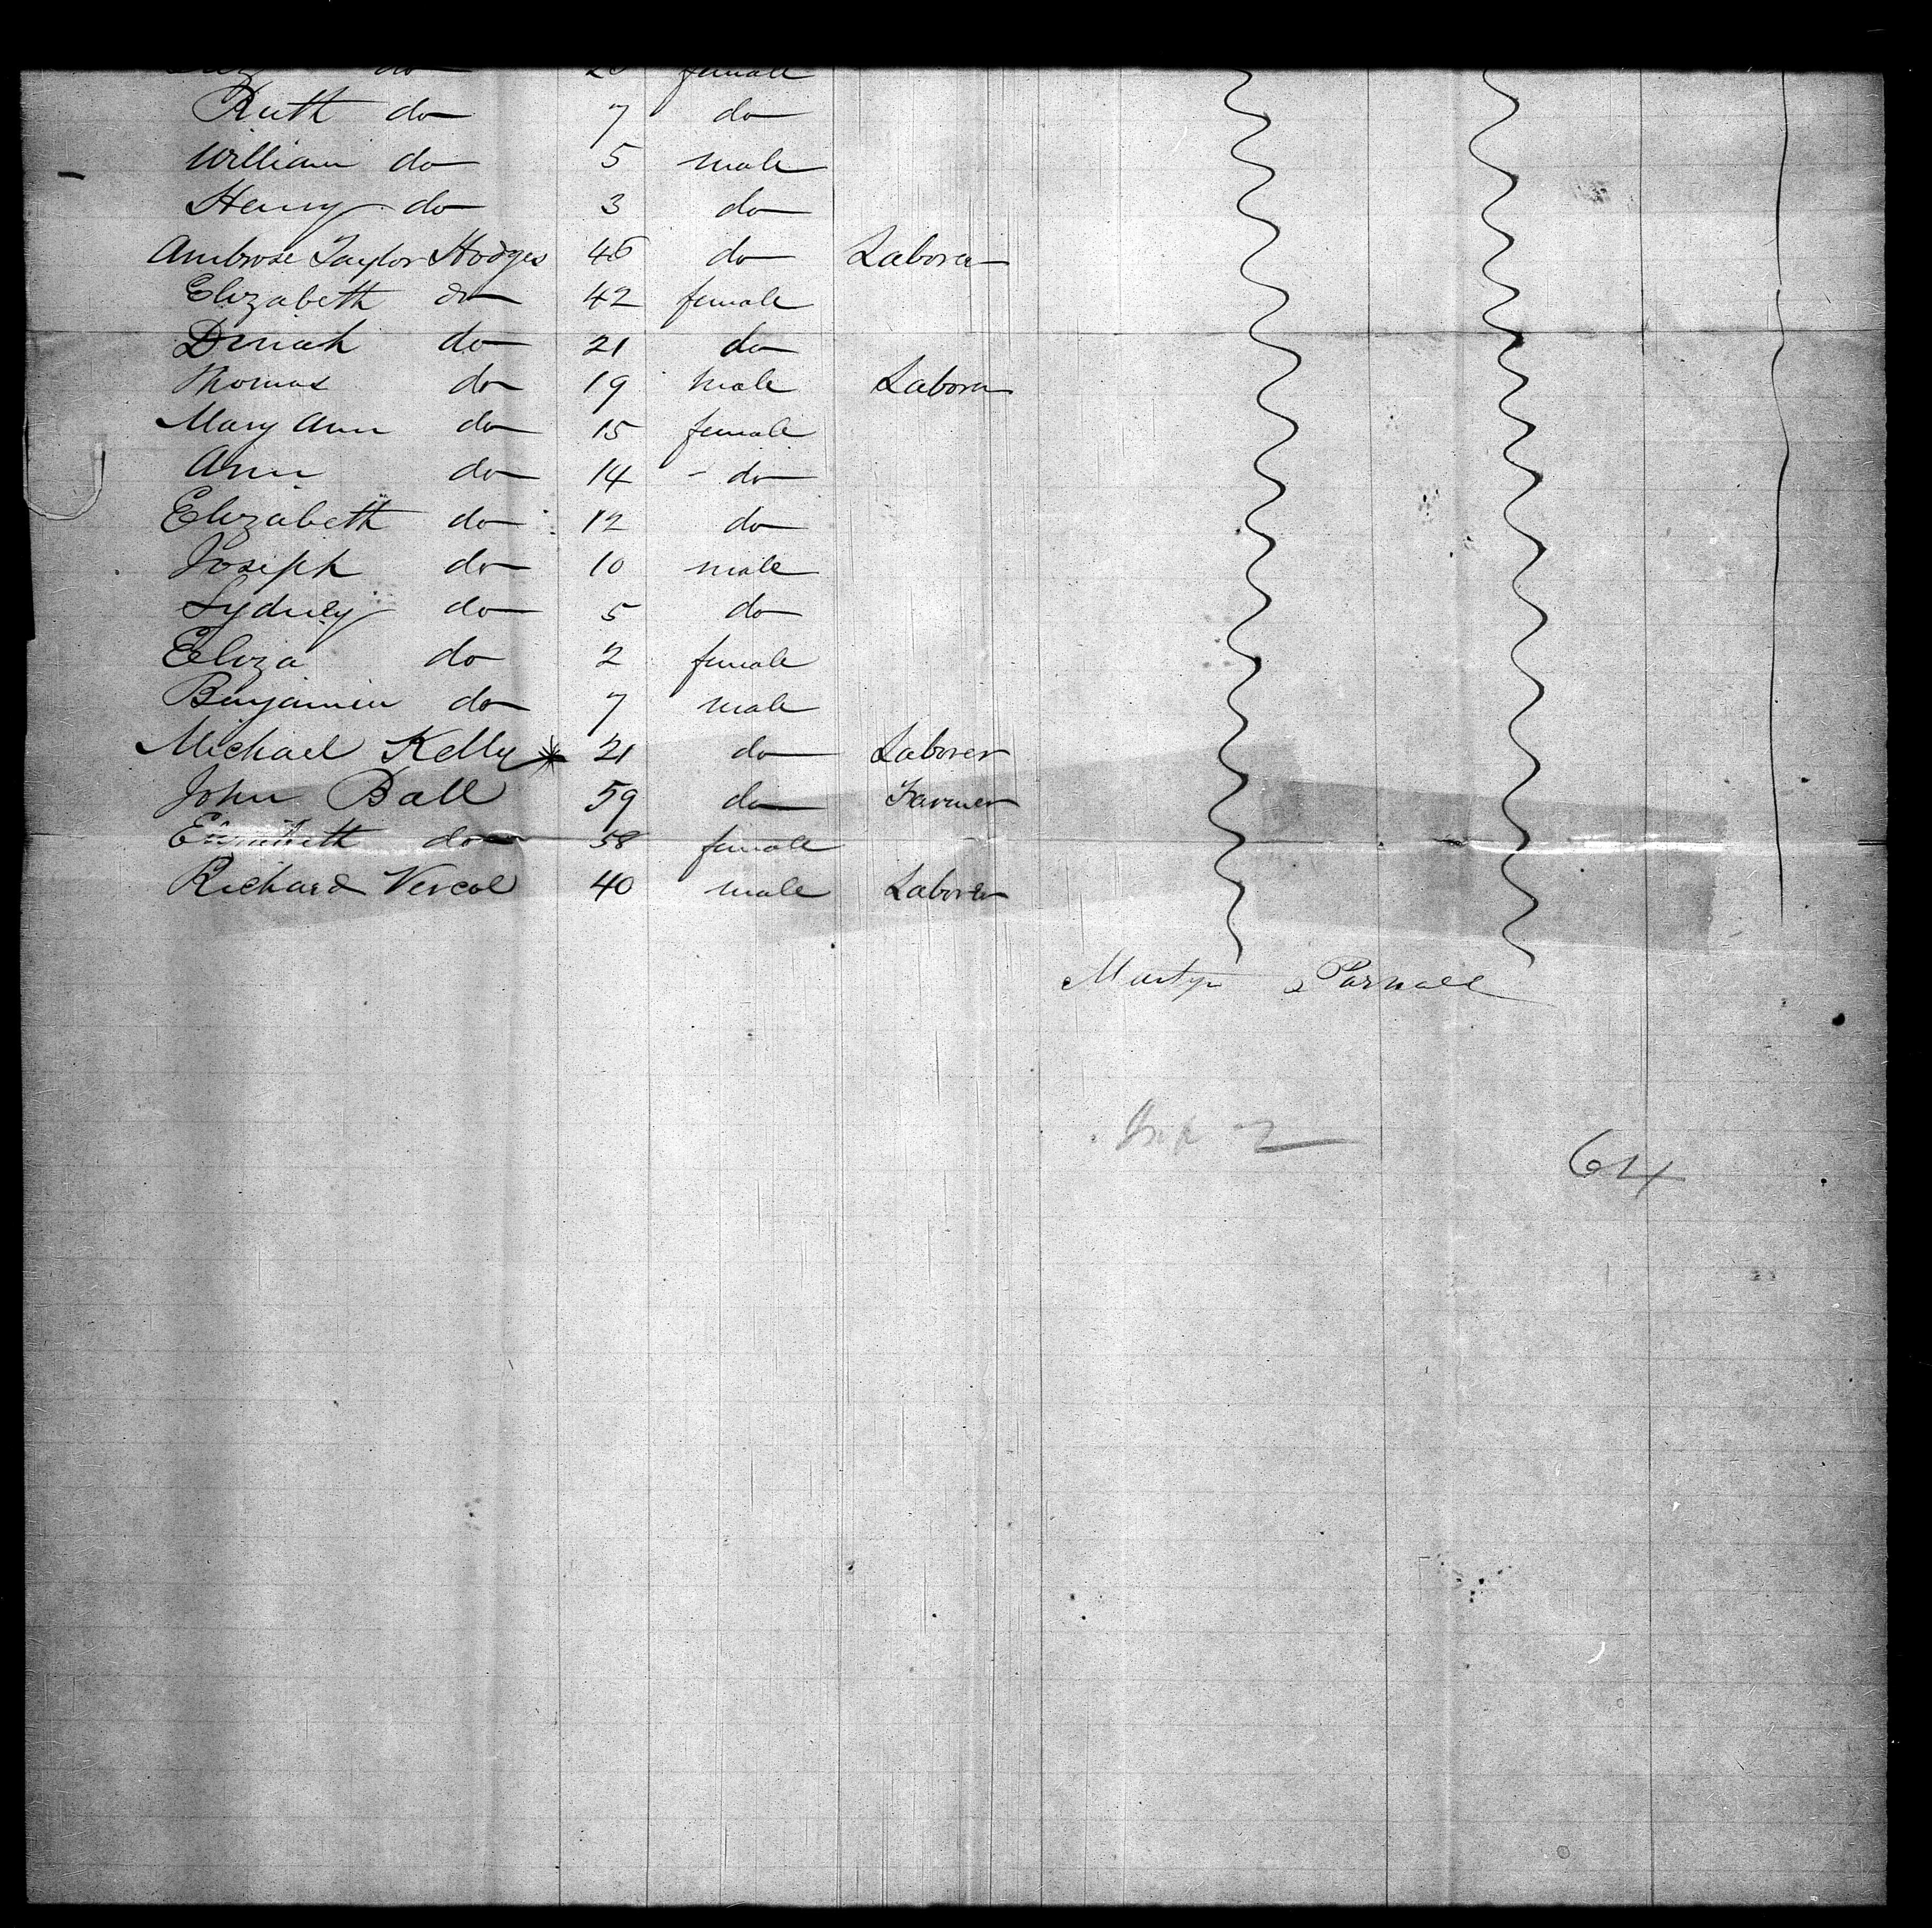 do female
Ruth do 7 do
William do 5 male
Henry do 3 do
Ambrose Taylor Hodges 46 do Laborer
Elizabeth do 42 female
Dinah do 21 do
Thomas do 19 male Laborer
Mary Ann do 15 female
Ann do 14 - do
Elizabeth do 12 do
Joseph do 10 male
Sydney do 5 do
Eliza do 2 female
Benjamin do 7 male
Michael Kelly * 21 do Laborer
John Ball 59 do Farmer
Elizabeth do 58 female
Richard Vercol 40 male Laborer
Martyn Parnall
2
64